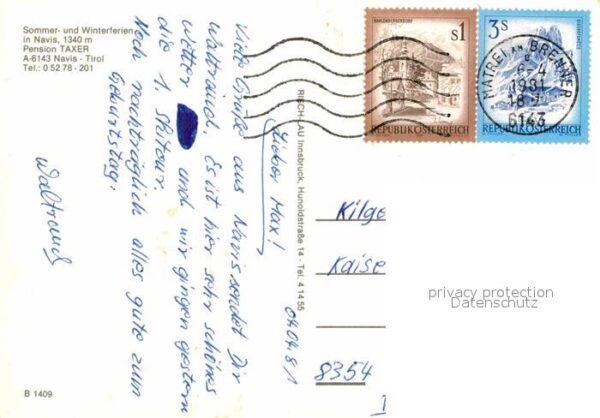 Sommer- und Winterferien
in Navis, 1340 m
Pension TAXER
A-6143 Navis - Tirol
Tel.: 0 52 78 - 201
04.04.81
Lieber Max!
Viele Grüße aus Navis sendet Dir
Waltraud. Es ist hier sehr schönes
Wetter und wir gingen gestern
die 1. Skitour.
Noch nachträglich alles gute zum
Geburtstag.
Waltraud
RISCH-LAU Innsbruck, Hunoldstraße 14 - Tel. 4 14 55
B 1409
s1
REPUBLIK ÖSTERREICH
3s
REPUBLIK ÖSTERREICH
MATREI AM BRENNER
1981
6143
Kilge
Kaise
8354
privacy protection
Datenschutz